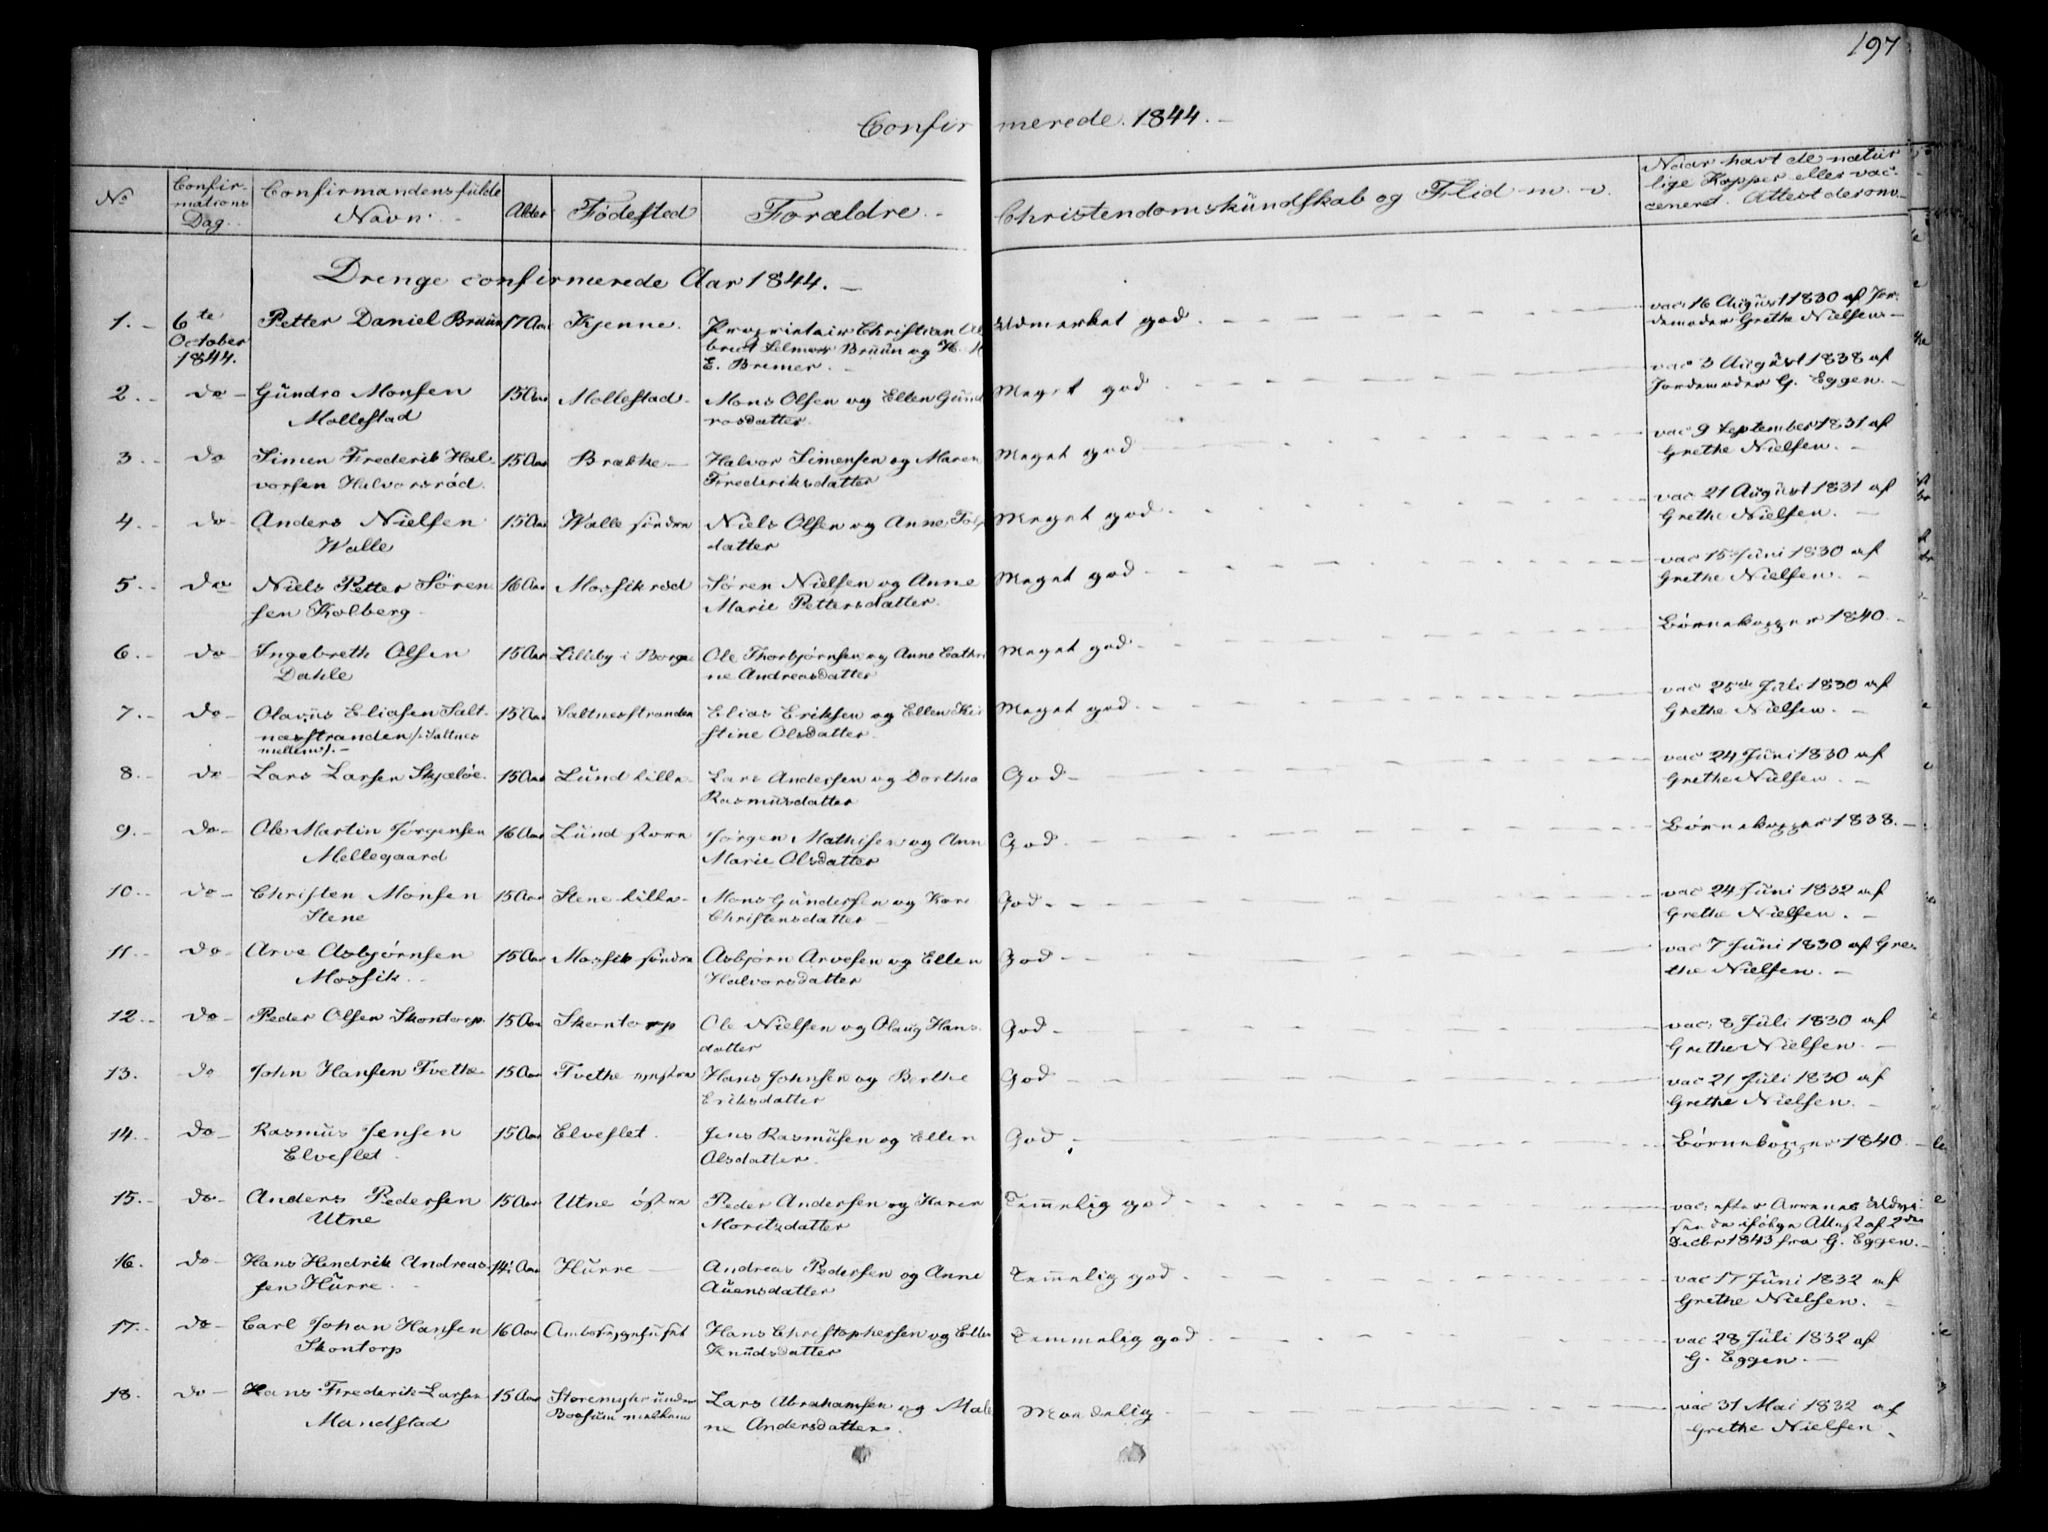 197
Confirmerede 1844.
No
Confirmations Dag.
Confirmandens fulde Navn.
Alder
Fødested
Forældre.
Christendomskundskab og Flid m. v.
Naar havt de naturlige Kopper eller vacceneret. Attest derom
Drenge confirmerede Aar 1844.
1. 6te October 1844. Petter Daniel Bruun 17 Aar Kjenne. Proprietair Christian Albrect Selmer Bruun og H. M E. Bremer. Udmærket god vac: 16 August 1830 af Jordemoder Grethe Nielsen.
2. do Gundro Monsen Mollestad 15 Aar Mollestad Mons Olsen og Ellen Gundrosdatter Meget god vac 3 August 1838 af Jordemoder G. Eggen.
3. do Simen Frederik Halvorsen Halvorsrød. 15 Aar Brække Halvor Simensen og Maren Frederiksdatter Meget god vac 9 September 1831 af Grethe Nielsen.
4. do Anders Nielsen Walle 15 Aar Walle søndre Niels Olsen og Anne datter Meget god vac 21 August 1831 af Grethe Nielsen.
5. do Niels Petter Sørensen Kolberg 16 Aar Mossikrød Søren Nielsen og Anne Marie Pettersdatter. Meget god vac 15 Juni 1830 af Grethe Nielsen.
6. do Ingebreth Olsen Dahle 15 Aar Lilleby i Borge Ole Thorbjørnsen og Anne Cathrine Andreasdatter Meget god Børnekopper 1840.
7. do Olavus Eliasen Saltnesstranden /: Saltnes mellem /. 15 Aar Saltnesstranden Elias Eriksen og Ellen Kistine Olsdatter. Meget god vac 25de Juli 1830 af Grethe Nielsen.
8. do Lars Larsen Skjæløe 15 Aar Lund lille Lars Andersen og Dorthea Rasmusdatter God vac 24 Juni 1830 af Grethe Nielsen.
9. do Ole Martin Jørgensen Mellegaard 16 Aar Lund store Jørgen Mathisen og Ann Marie Olsdatter God Børnekopper 1838.
10. do Christen Monsen Stene 15 Aar Stene lille Mons Gundersen og Kari Christensdatter God vac 24 Juni 1832 af Grethe Nielsen.
11. do Arve Asbjørnsen Mossik. 15 Aar Mossik søndre Asbjørn Arvesen og Ellen Halvorsdatter God vac 7 Juni 1830 af Grethe Nielsen.
12. do Peder Olsen Skontorp 15 Aar Skontorp Ole Nielsen og Olaug Hansdatter God vac: 8 Juli 1830 af Grethe Nielsen.
13. do John Hansen Tvethe 15 Aar Tvethe nystre Hans Johnsen og Berthe Eriksdatter God vac 21 Juli 1830 af Grethe Nielsen.
14. do Rasmus Jensen Elveflet. 15 Aar Elveflet. Jens Rasmusen og Ellen Olsdatter. God Børnekopper 1840
15. do Anders Pedersen Utne 15 Aar Utne østre Peder Andersen og Karen Moritzdatter Temmelig god vac: efter Arrenes Udvisende ifølge Attest af 2den Decbr 1843 fra G. Eggen.
16. do Hans Hendrik Andreassen Hurre 14½ Aar Hurre Andreas Pedersen og Anne Auensdatter Temmelig god vac 17 Juni 1832 af Grethe Nielsen.
17. do Carl Johan Hansen Skontorp 16 Aar Amborggehuset Hans Christophersen og Ellen Knudsdatter Temmelig god vac 28 Juli 1832 af G. Eggen.
18. do Hans Frederik Larsen Mandstad 15 Aar Storemyhr under Boosum mellem Lars Abrahamsen og Malene Andersdatter. Maadelig vac 31 Mai 1832 af Grethe Nielsen